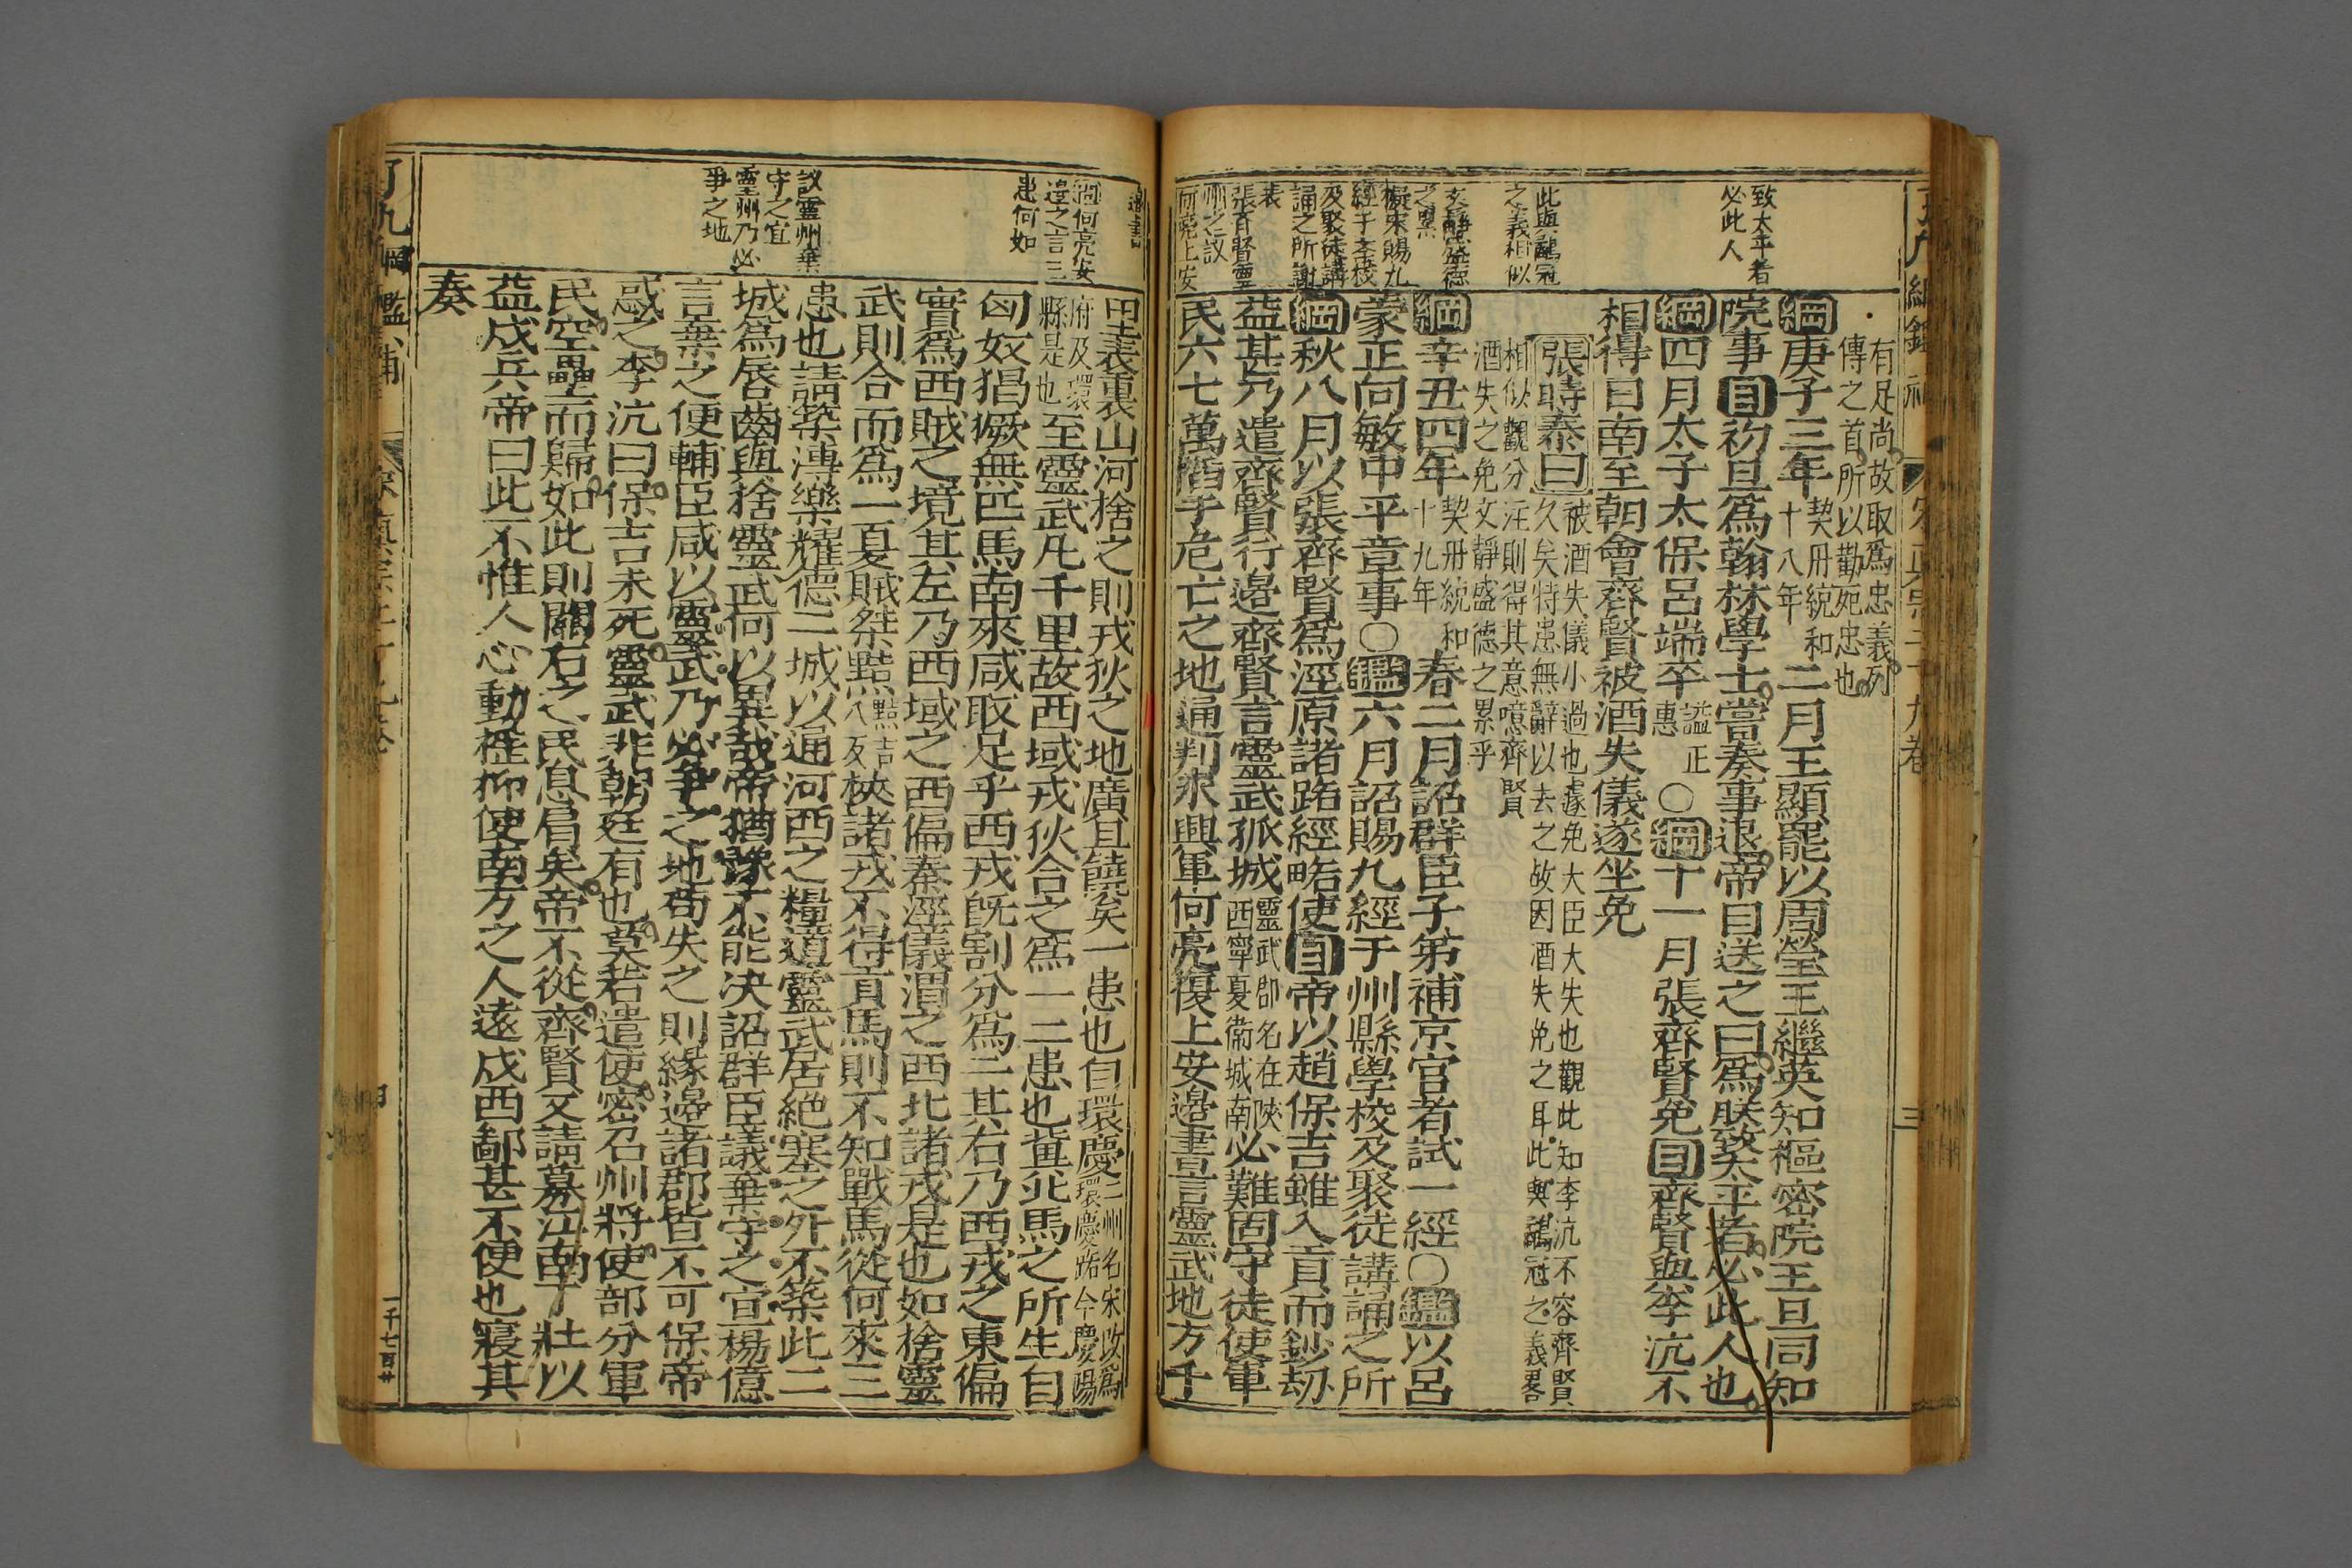 致太平者
必此人
此與鶡冠
之義相似
文靜盛德
之累
擬宋賜九
經于学校
及聚徒講
誦之所謝
表
張齊賢靈
州之議
何亮上安
有足尚故取爲忠義列
傳之首所以勸死忠也
綱庚子三年契丹統和十八年二月王顯罷以周瑩王繼英知樞密院王旦同知
院事目初旦爲翰林學士嘗奏事退帝目送之曰爲朕致太平者必此人也
綱四月太子太保呂端卒謚正惠〇綱十一月張齊賢免目齊賢與李沆不
相得日南至朝會齊賢被酒失儀遂坐免
張時泰曰被酒失儀小過也遽免大臣大失也觀此知李沆不容齊賢
久矣特患無辭以去之故因酒失免之耳此與鶡冠之義畧
相似觀分注則得其意噫齊賢
酒失之免文靜盛德之累乎
綱辛丑四年契丹統和十九年春二月詔群臣子弟補京官者試一經〇鑑以呂
蒙正向敏中平章事〇鑑六月詔賜九經于州縣學校及聚徒講誦之所
綱秋八月以張齊賢爲涇原諸路經略使目帝以趙保吉雖入貢而鈔劫
益甚乃遣齊賢行邊齊賢言靈武孤城靈武郡名在陝西寧夏衛城南必難固守徒使軍
民六七萬陷于危亡之地通判永興軍何亮復上安邊書言靈武地方千
邊書
何亮安
邊之言三
患何如
議靈州棄
守之宜
靈州乃必
爭之地
里表裏山河捨之則戎狄之地廣且饒矣一患也自環慶二州名宋改爲環慶路今慶陽
府及環縣是也至靈武凡千里故西域戎狄合之爲一二患也冀北馬之所生自
匈奴猖獗無匹馬南來咸取足乎西戎既割分爲二其右乃西戎之東偏
實爲西賊之境其左乃西域之西偏秦涇儀渭之西北諸戎是也如捨靈
武則合而爲一夏賊桀黠黠吉八反挾諸戎不得貢馬則不知戰馬從何來三
患也請築溥樂耀德二城以通河西之糧道靈武居絕塞之外不築此二
城爲唇齒與捨靈武何以異哉帝猶豫不能决詔群臣議棄守之宜楊億
言棄之便輔臣咸以靈武乃必爭之地苟失之則緣邊諸郡皆不可保帝
惑之李沆曰保吉未死靈武非朝廷有也莫若遣使密召州將使部分軍
民空壘而歸如此則關右之民息肩矣帝不從齊賢又請募江南丁壯以
益戍兵帝曰此不惟人心動搖抑使南方之人遠戍西鄙甚不便也寢其
奏
了凡綱鑑補
一千七百廿